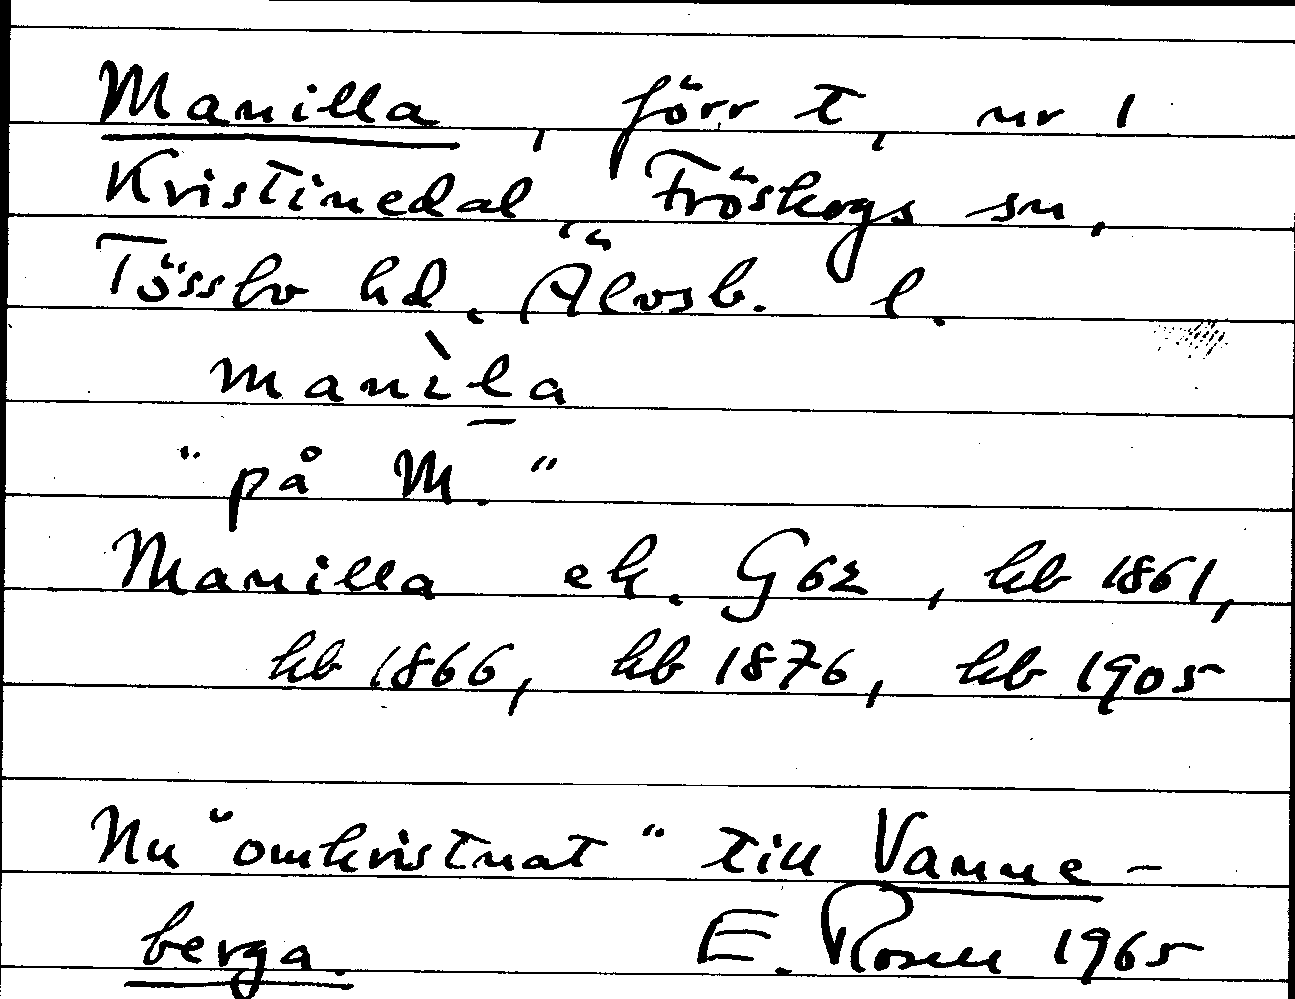 Manilla, förr t, nr 1
Kristinedal, Fröskogs sn,
Tössbo hd, Älvsb. l.
manìla
"på M."
Manilla ek. G62, hb 1861,
hb 1866, hb 1876, hb 1905
Nu "omkristnat" till Vanne-
berga. E. Rosell 1965